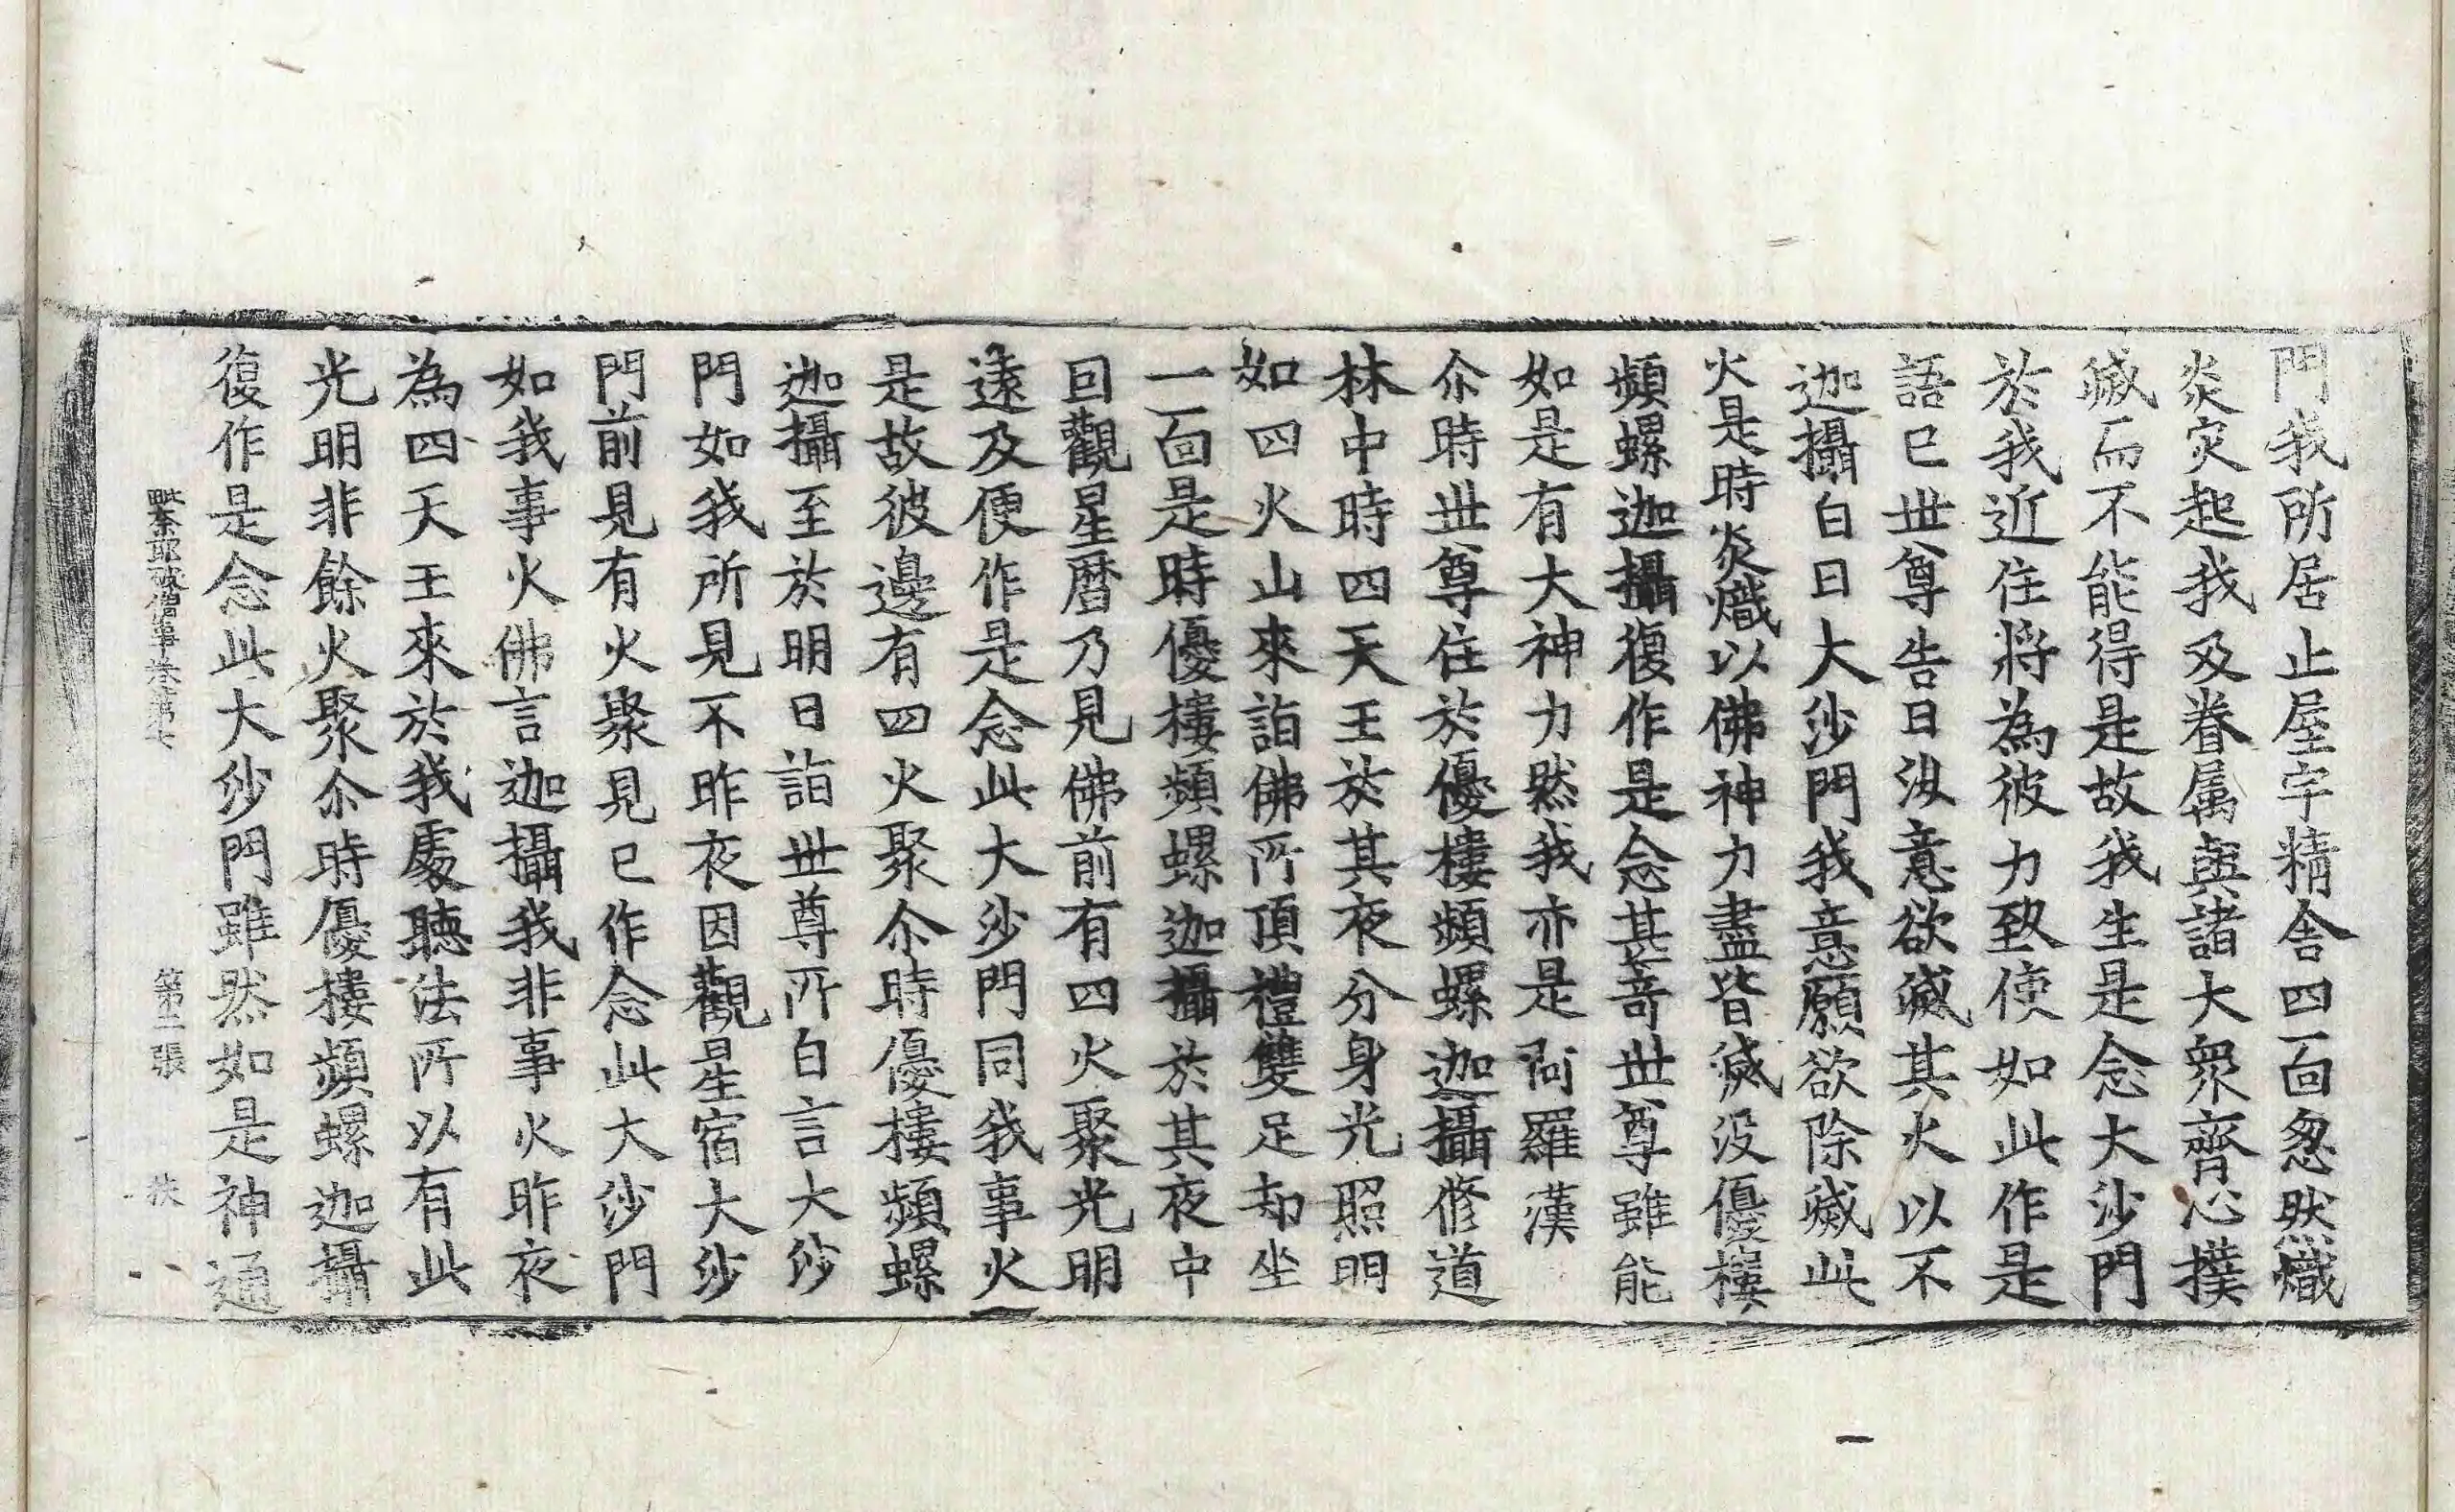 門我所居止屋宇精舍四面忽然熾
炎灾起我及眷属與諸大衆齊心撲
滅而不能得是故我生是念大沙門
於我近住將為彼力致使如此作是
語已世尊告曰汝意欲滅其火以不
迦攝白曰大沙門我意願欲除滅此
火是時炎熾以佛神力盡皆滅没優樓
頻螺迦攝復作是念甚奇世尊雖能
如是有大神力然我亦是阿羅漢
尒時世尊住於優樓頻螺迦攝修道
林中時四天王於其夜分身光照明
如四火山來詣佛所頂禮雙足却坐
一面是時優樓頻螺迦攝於其夜中
回觀星曆乃見佛前有四火聚光明
遠及便作是念此大沙門同我事火
是故彼邊有四火聚尒時優樓頻螺
迦攝至於明日詣世尊所白言大沙
門如我所見不昨夜因觀星宿大沙
門前見有火聚見已作念此大沙門
如我事火佛言迦攝我非事火昨夜
為四天王來於我處聽法所以有此
光明非餘火聚尒時優樓頻螺迦攝
復作是念此大沙門雖然如是神通
破僧事卷第七 第二張